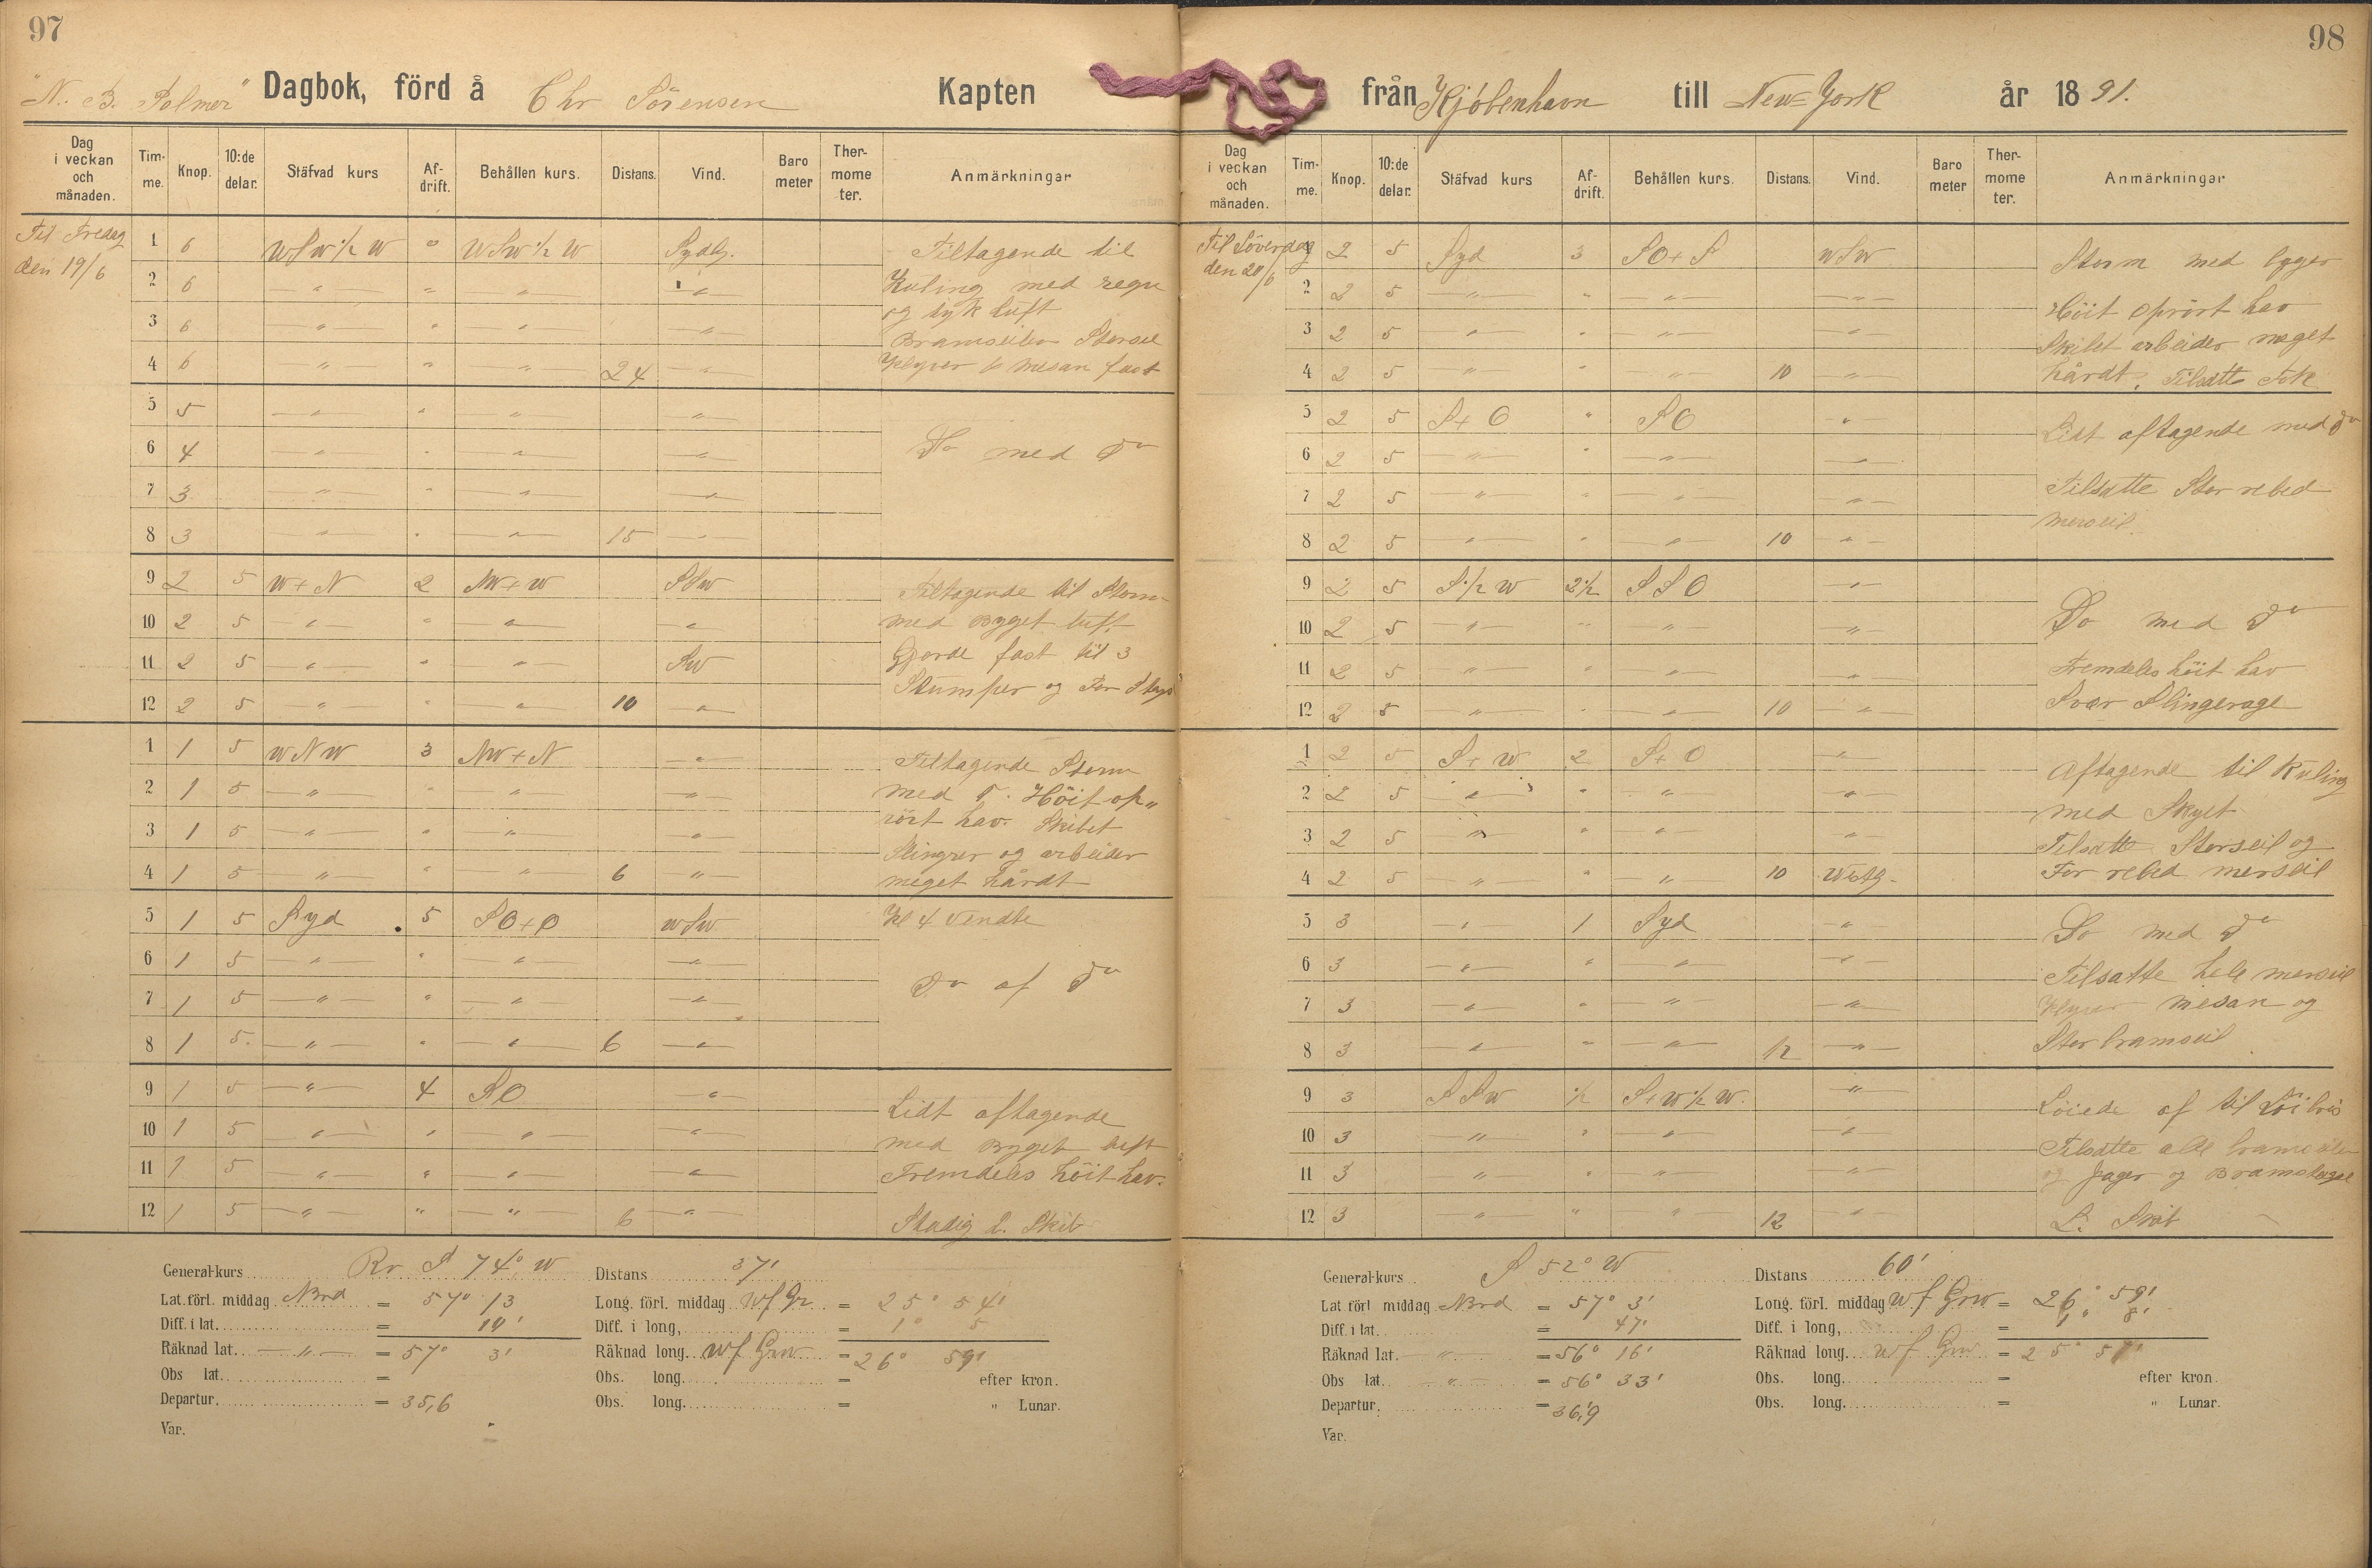 97
"N. B. Palmer" Dagbok, förd å Chr Sörensen Kapten
Dag i veckan och månaden. Tim-me. Knop. 10:de delar. Stäfvad kurs Af-drift. Behållen kurs. Distans. Vind. Baro meter Ther-mome ter. Anmärkningar
Til Fredag den 19/6
1 6 WSW 1/2 W " WSW 1/2 W Sydlg. Tiltagende til
2 6 " " " " Kuling med regn
3 6 " " " " og tyk luft
Bramseilen Storseil
4 6 " " " 24 " Klyver & Mesan fast
5 5 " " " "
6 4 " " " " Do med do
7 3 " " " "
8 3 " " " 15 "
9 2 5 W+N 2 NW+W SSW Tiltagende til Storm
10 2 5 " " " " med Byget luft
11 2 5 " " " SW Gjorde fast til 3
12 2 5 " " " 10 " Stumper og For Stags
1 1 5 WNW 3 NW+N " Tiltagende Storm
2 1 5 " " " " med do. Höit op"
3 1 5 " " " " rört hav. Skibet
Slingrer og arbeider
4 1 5 " " " 6 " meget hårdt
5 1 5 Syd 5 SO+O WSW Kl 4 vendte
6 1 5 " " " "
7 1 5 " " " " do af do
8 1 5 " " " 6 "
9 1 5 " 4 SO " Lidt aftagende
10 1 5 " " " " med Byget luft
11 1 5 " " " " Fremdeles höit hav.
12 1 5 " " " 6 " Stadig L. Skib
General-kurs Rv S 74° W Distans 37'
Lat. förl. middag Nord = 57° 13 Long. förl. middag W f Gr = 25° 54'
Diff. i lat. = 10' Diff. i long, = 1° 5
Räknad lat. " = 57° 3' Räknad long. W f Grw = 26° 59'
Obs lat. = Obs. long. = efter kron.
Departur. = 35,6 Obs. long. = " Lunar.
Var.
98
från Kjöbenhavn till New=York år 1891.
Dag i veckan och månaden. Tim-me. Knop. 10:de delar. Stäfvad kurs Af-drift. Behållen kurs. Distans. Vind. Baro meter Ther-mome ter. Anmärkningar
Til Löverdag den 20/6
1 2 5 Syd 3 SO+S WSW Storm med byger
2 2 5 " " " " Höit oprört hav
3 2 5 " " " " Skibet arbeider meget
4 2 5 " " " 10 " hårdt. Tilsatte Fok
5 2 5 S+O " SO " Lidt aftagende med do
6 2 5 " " " "
7 2 5 " " " " Tilsatte Stor rebed
8 2 5 " " " 10 " merseil
9 2 5 S 1/2 W 2 1/2 SSO "
10 2 5 " " " " Do med do
11 2 5 " " " " Fremdeles höit hav
12 2 5 " " " 10 " Svær Slingerage
1 2 5 S+W 2 S+O " Aftagende til Kuling
2 2 5 " " " " med Skyet
3 2 5 " " " " Tilsatte Storseil og
4 2 5 " " " 10 Westlg. For rebed merseil
5 3 " 1 Syd " Do med do
6 3 " " " " Tilsatte hele merseil
7 3 " " " " Klyver Mesan og
8 3 " " " 12 " Stor bramseil
9 3 SSW 1/2 S+W 1/2 W. " Löiede af til
10 3 " " " " Tilsatte alle bramseilen
11 3 " " " " og Jager og
12 3 " " " 12 " L. Skib
General-kurs S 52° W Distans 60'
Lat förl middag Nord = 57° 3' Long. förl. middag W f Grw = 26° 59'
Diff. i lat. = 47' Diff. i long, = 1° 8'
Räknad lat. " = 56° 16' Räknad long. W f Grw = 25° 51'
Obs lat. " = 56° 33' Obs. long. = efter kron.
Departur. = 36,9 Obs. long. = " Lunar.
Var.